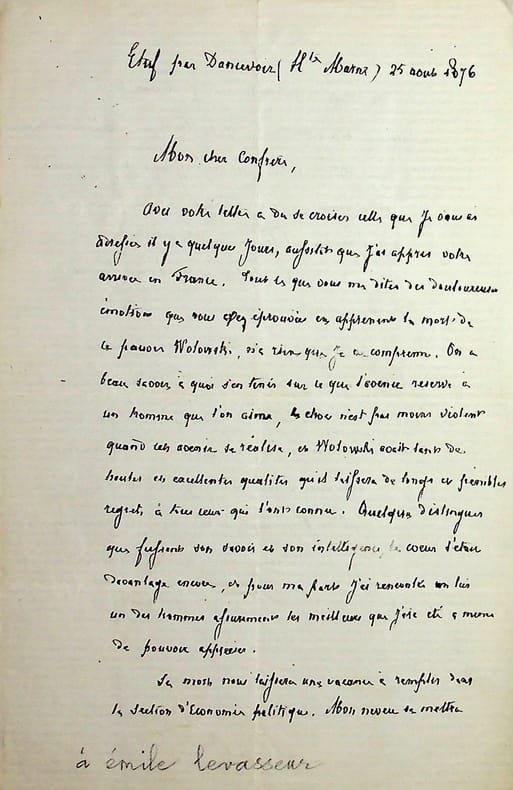 Etuf par Dancevoir (Hte Marne) 25 aout 1876
Mon cher Confrère,
Avec votre lettre a du se croiser celle que Je vous ai
adressée il y a quelques Jours, aussitôt que J'ai appris votre
arrivée en France. Tout ce que vous me dites des douloureuses
émotions que vous avez éprouvées en apprenant la mort de
ce pauvre Wolowski, n'a rien que Je ne comprenne. On a
beau savoir à quoi s'en tenir sur ce que l'avenir reserve à
un homme que l'on aime, le choc n'est pas moins violent
quand cet avenir se réalise, et Wolowski avait tant de
hautes et excellentes qualités qu'il laissera de longs et pénibles
regrets à tous ceux qui l'ont connu. Quelques distingués
que fussent son savoir et son intelligence, le coeur l'était
davantage encore, et pour ma part J'ai rencontré en lui
un des hommes assurement les meilleurs que J'aie été à meme
de pouvoir apprécier.
Sa mort nous laissera une vacance à remplir dans
la section d'Economie politique. Mon neveu se mettra
à émile levasseur